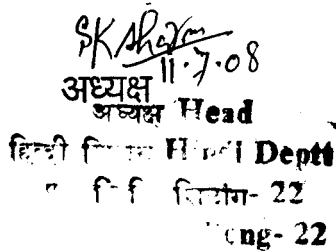 SK Sharm
11.7.08
अध्यक्ष
अध्यक्ष Head
हिन्दी Hindi Deptt
शिलांग- 22
ng- 22